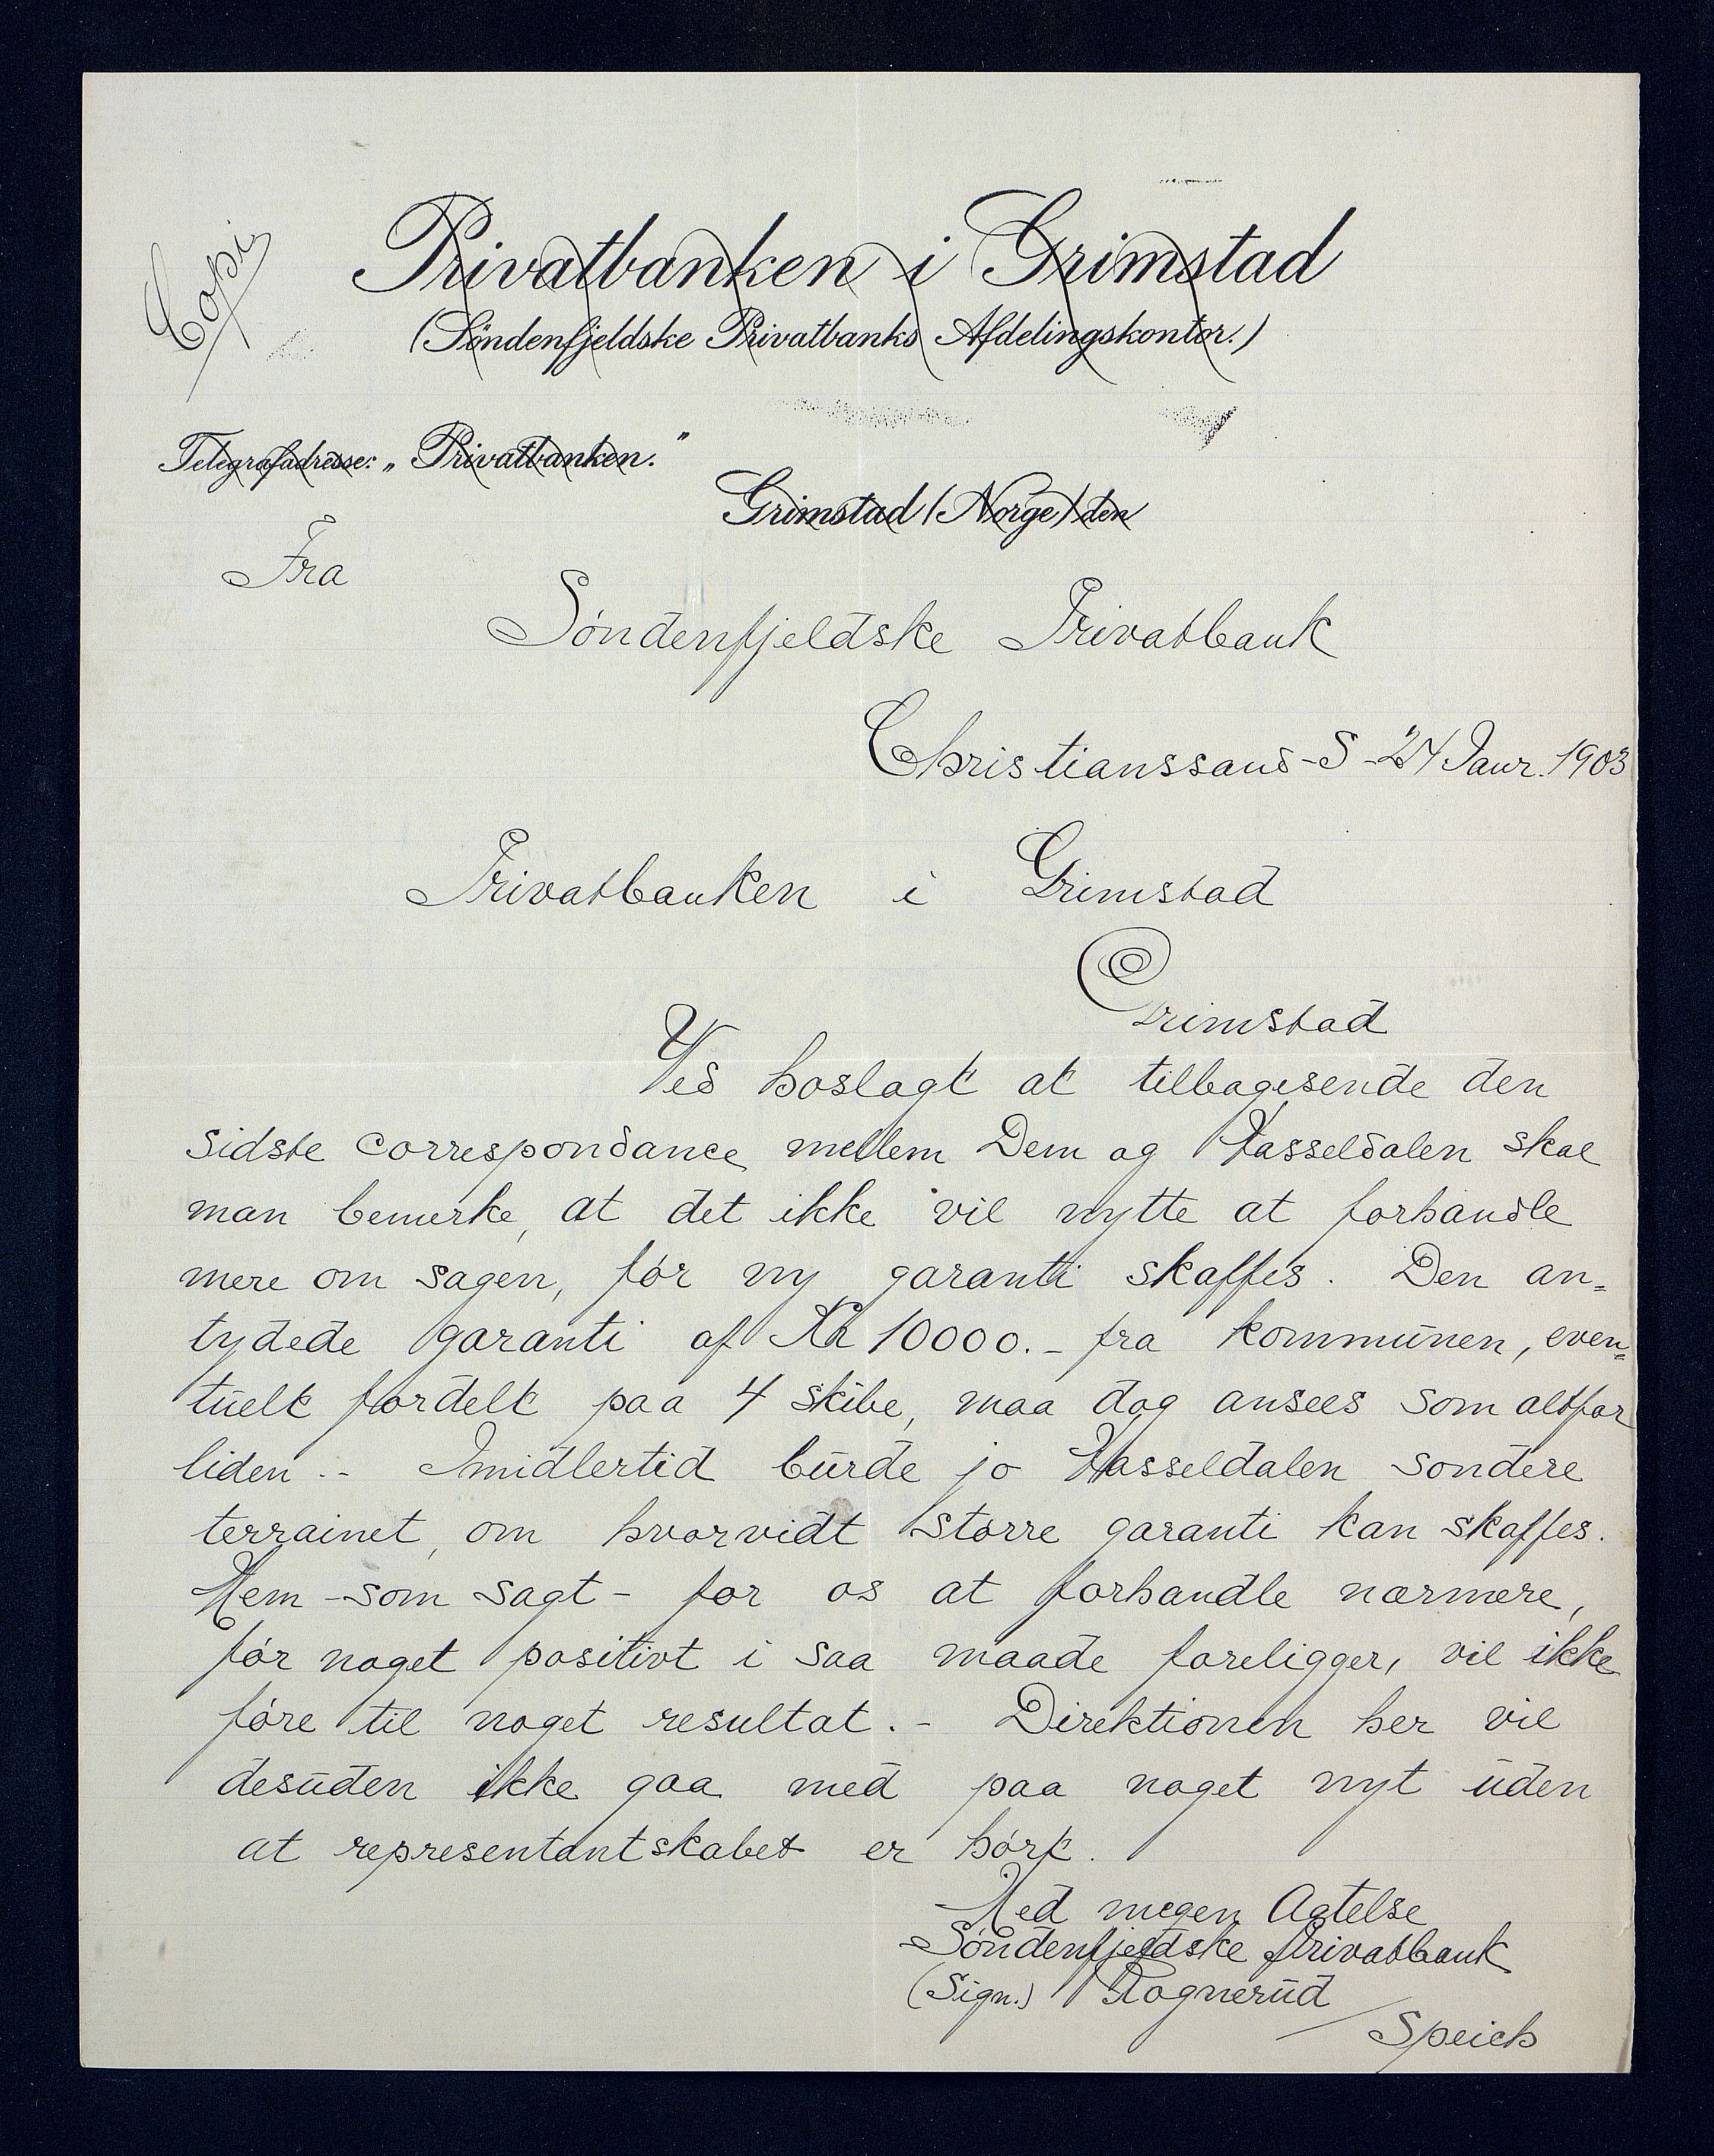 Copi
Privatbanken i Grimstad
(Söndenfjeldske Privatbanks Afdelingskontor.)
Telegrafadresse: „Privatbanken."
Grimstad (Norge) den
Fra
Söndenfjeldske Privatbank
Christianssand-S-24 Janr. 1903
Privatbanken i Grimstad
Grimstad
Ved hoslagt at tilbagesende den
sidste correspondance mellem Dem og Hasseldalen skal
man bemerke, at det ikke vil nytte at forhandle
mere om sagen, før ny garanti skaffes. Den an=
tydede garanti af Kr 10000.- fra kommunen, even=
tuelt fordelt paa 4 skibe, maa dog ansees som altfor
liden.- Imidlertid burde jo Hasseldalen sondere
terrainet, om hvorvidt større garanti kan skaffes.
Men -som sagt- for os at forhandle nærmere,
før noget positivt i saa maade foreligger, vil ikke
føre til noget resultat.- Direktionen her vil
desuden ikke gaa med paa noget nyt uden
at representantskabet er hørt.
Med megen Agtelse
Söndenfjeldske Privatbank
(Sign.) Rognerud
/ Speich